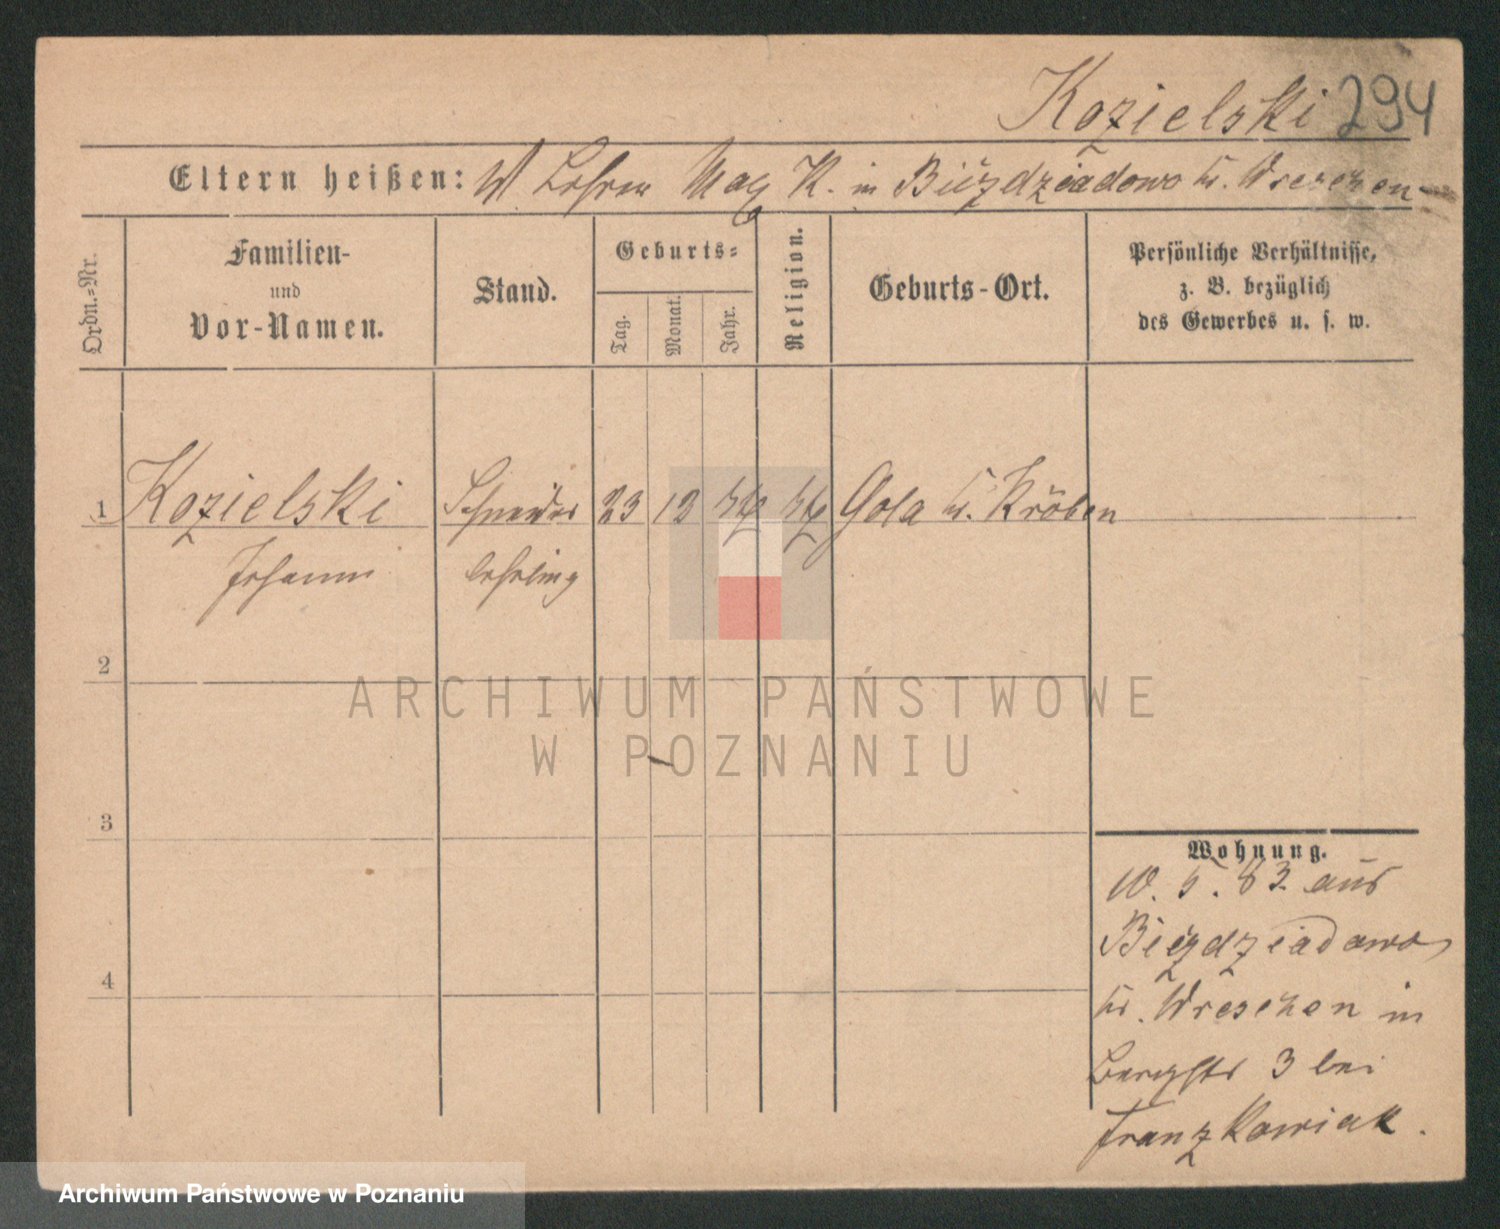 Kozielski 294
Eltern heißen: W Lehrer Max K. in Bieździadowo Kr. Wreschen
Ordn.=Nr.
Familien-
und
Vor-Namen.
Stand.
Geburts=
Tag.
Monat.
Jahr.
Religion.
Geburts-Ort.
Persönliche Verhältnisse,
z. B. bezüglich
des Gewerbes u. s. w.
1 Kozielski Schneider 23 12 Gola Kr. Kröben
Johann lehrling
2
3
4
Wohnung.
5. 83 aus
Bieździadowo
Kr. Wreschen in
3 bei
Franzkowiak.
ARCHIWUM PAŃSTWOWE
W POZNANIU
Archiwum Państwowe w Poznaniu